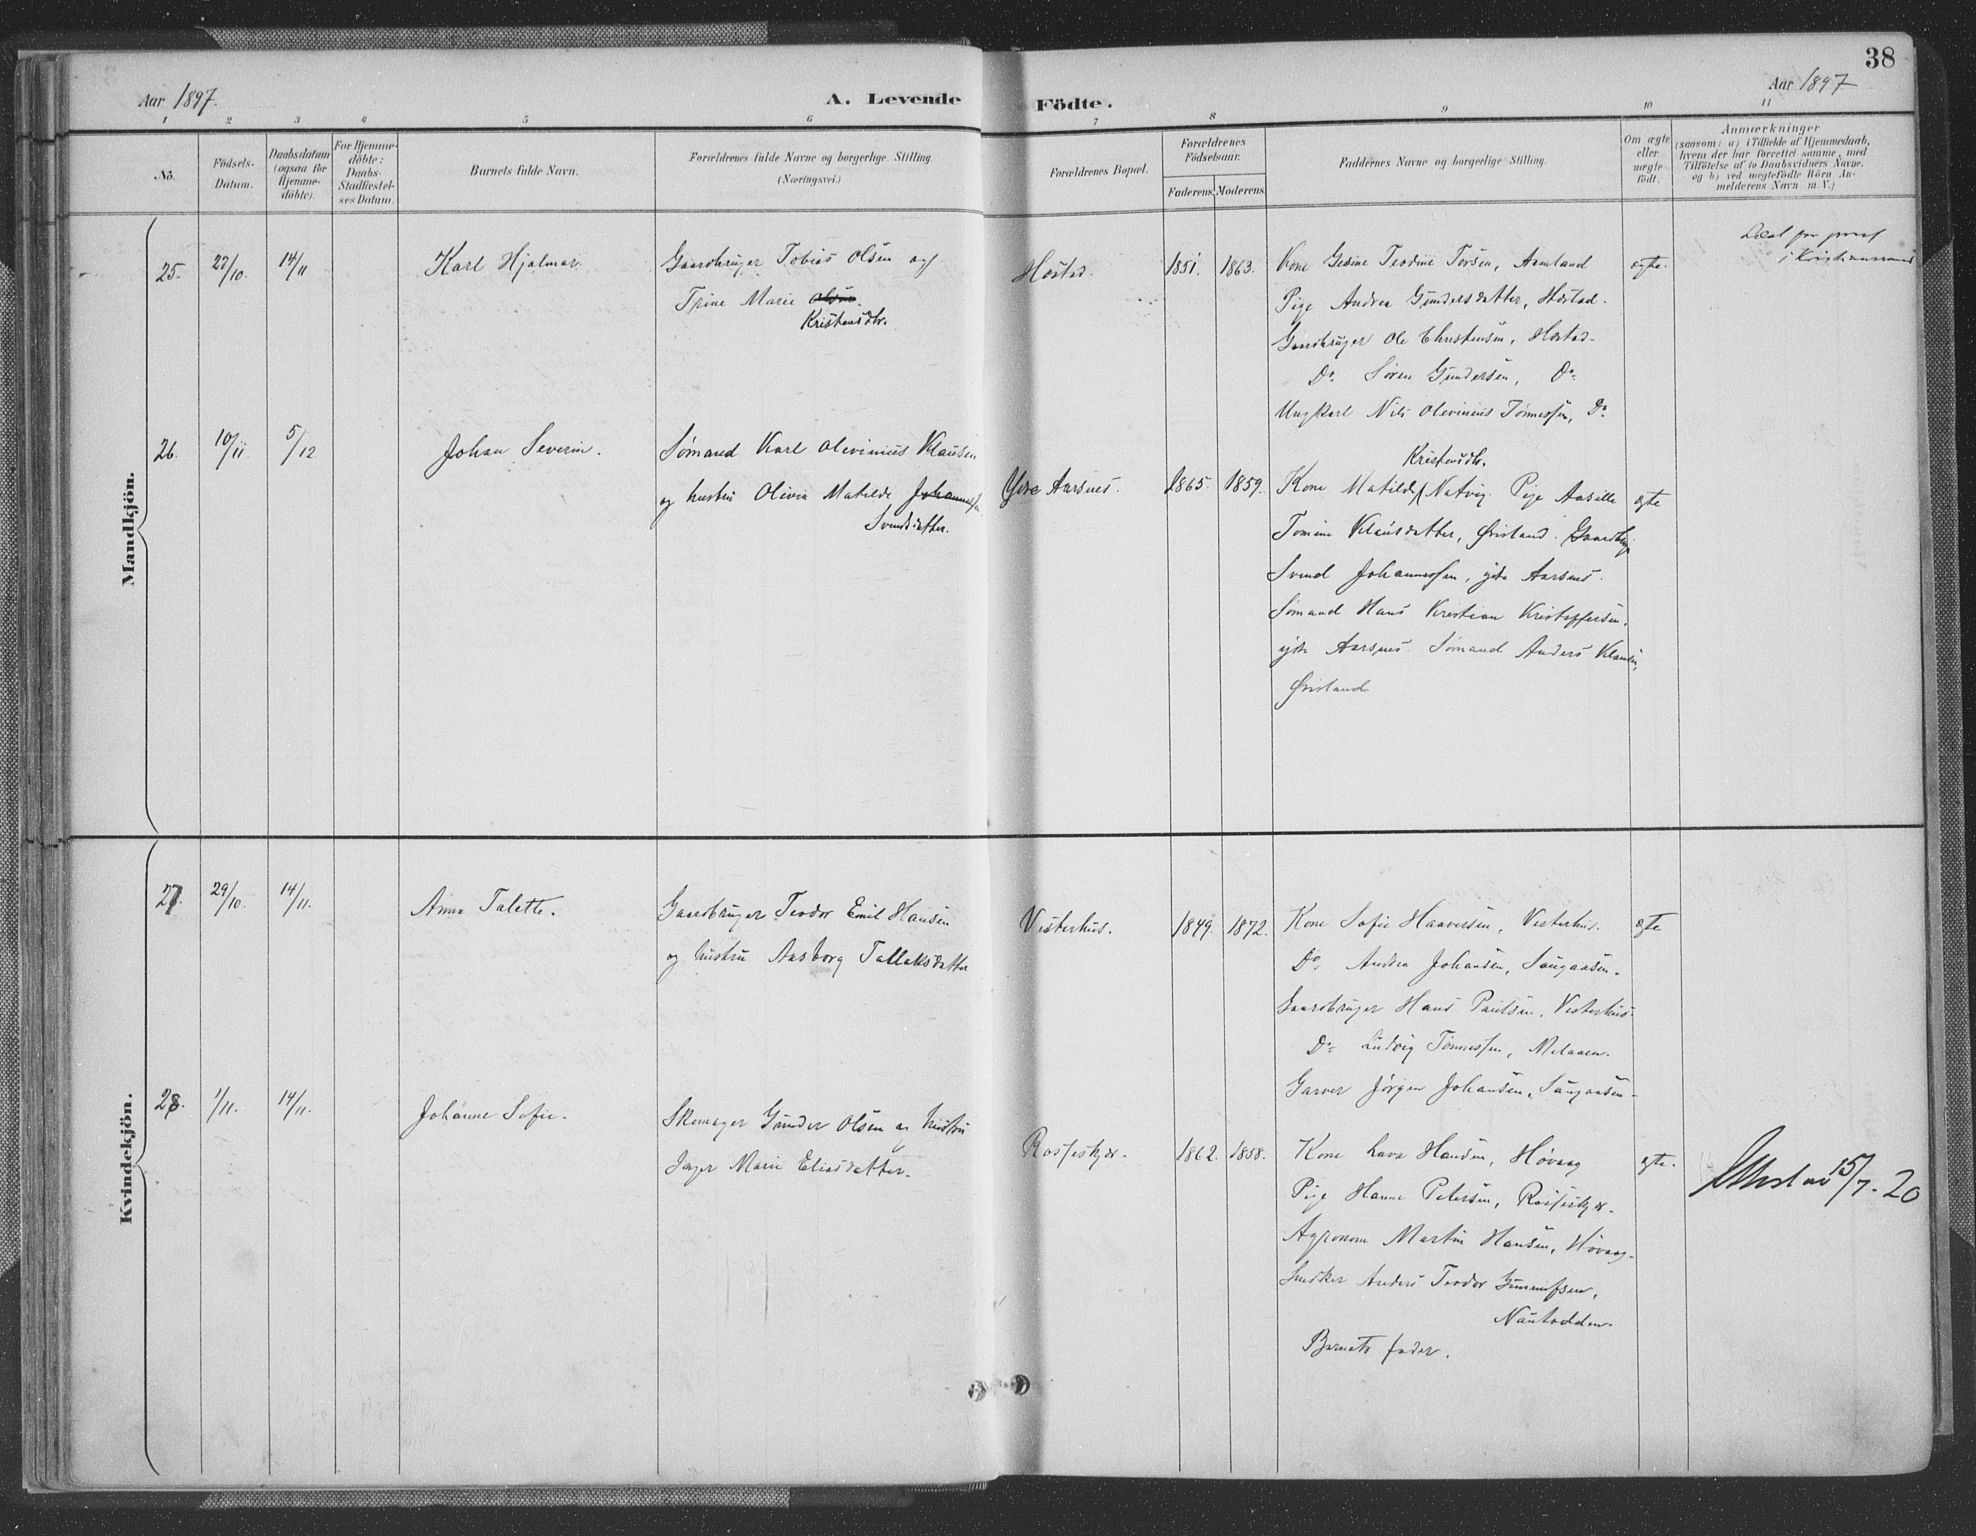 38
Aar 1897.
A. Levende
Födte.
Aar 1897
1 2 3 4 5 6 7 8 9 10 11
No.
Födsels-
Datum.
Daabsdatum
(ogsaa for
Hjemme-
döbte).
For Hjemme-
döbte:
Daabs-
Stadfæstel-
ses Datum.
Barnets fulde Navn.
Forældrenes fulde Navne og borgerlige Stilling
(Næringsvei.)
Forældrenes Bopæl.
Forældrenes
Födselsaar.
Faderens. Moderens.
Faddernes Navne og borgerlige Stilling.
Om ægte
eller
uægte
födt.
Anmærkninger
(saasom: a) i Tilfælde af Hjemmedaab,
hvem der har forrettet samme, med
Tilföielse af to Daabsvidners Navne,
og b) ved uægtefödte Börn An-
melderens Navn m. V.)
Mandkjön.
25. 27/10. 14/11
Karl Hjalmar.
Gaardbruger Tobias Olsen og
Trine Marie Olsen.
Kristensdtr.
Hæstad.
1851. 1863.
Kone Gesine Teodine Torsen, Aamland
Pige Andrea Gundersdatter, Hæstad.
Gaardbruger Ole Christensen, Hæstad.
Do. Søren Gundersen, Do.
Ungkarl Nils Olevinius Tønnessen, Do.
ægte.
i Kristianssand
26. 10/11. 5/12
Johan Severin.
Sømand Karl Olivinius Klausen
og hustru Olivia Matilde Johannessen.
Svendsdatter.
Ydre Aarsnes.
1865. 1859.
Kristensdtr.
Kone Matilde Natvig. Pige Aasille
Tomine Klausdatter, Øvistand. Gaardbrug
Svend Johannessen, ydre Aarsnes.
Sømand Hans Kristian Kristoffersen,
ydre Aarsnes. Sømand Anders Klausen,
Øvistand
ægte
Kvindekjön.
27. 29/10. 14/11.
Anna Talette.
Gaardbruger Teodor Emil Hansen
og hustru Aasborg Tallaksdatter
Vesterhus.
1849. 1872.
Kone Sofie Haaversen, Vesterhus.
Do. Andrea Johansen, Saugaasen.
Gaardbruger Hans Paulsen, Vesterhus.
Do. Ludvig Tønnessen, Melaaen.
Garver Jørgen Johansen, Saugaasen.
ægte
28. 1/11. 14/11.
Johanne Sofie.
Skomager Gunder Olsen og hustru
Inger Marie Eliasdatter.
Rosseskjær.
1862. 1858.
Kone Lava Hansen, Høvaag
Pige Hanne Petersen, Rosseskjær.
Agronom Martin Hansen, Høvaag.
Snedker Anders Teodor Gunnufsen,
Nautodden.
Barnets fader.
ægte.
Attestav 15/7-20